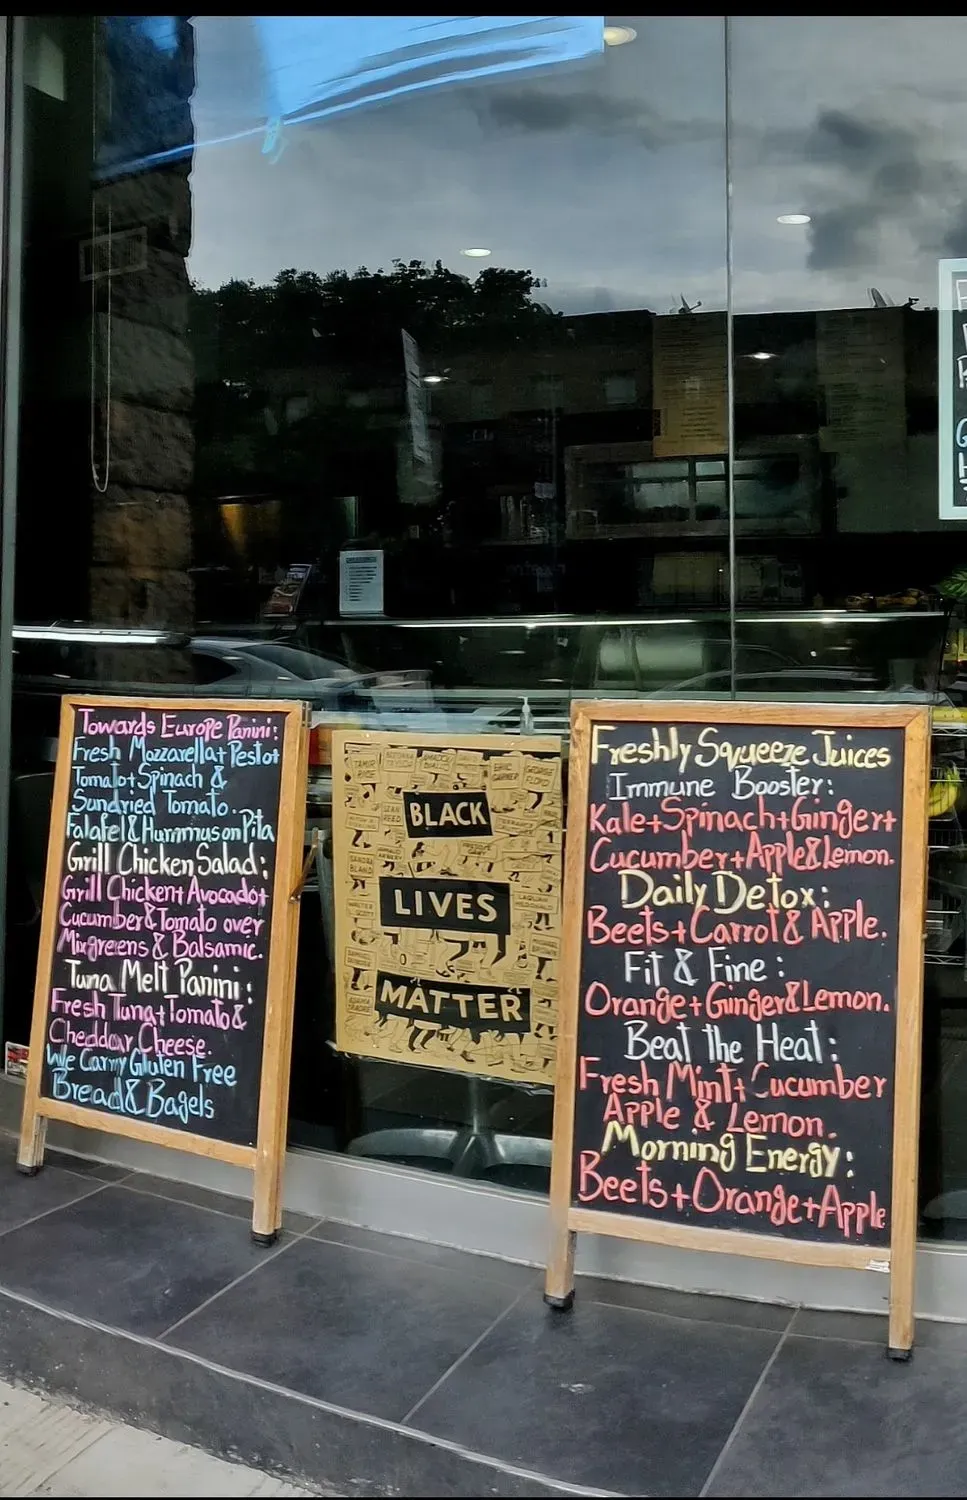 Towards Europe Panini:
Fresh Mozzarella+Pesto+
Tomato+Spinach &
Sundried Tomato.
Falafel & Hummus on Pita
Grill Chicken Salad:
Grill Chicken+Avocado+
Cucumber & Tomato over
Mixgreens & Balsamic.
Tuna Melt Panini:
Fresh Tuna+Tomato &
Cheddar Cheese.
We Carry Gluten Free
Bread & Bagels
TAMIR
RICE
ERIC
GARNER
GEORGE
FLOYD
BLACK
SANDRA
BLAND
LIVES
WALTER
SCOTT
MICHAEL
BROWN
MATTER
Freshly Squeeze Juices
Immune Booster:
Kale+Spinach+Ginger+
Cucumber+Apple&Lemon.
Daily Detox:
Beets+Carrot & Apple.
Fit & Fine:
Orange+Ginger&Lemon.
Beat the Heat:
Fresh Mint+Cucumber
Apple & Lemon.
Morning Energy:
Beets+Orange+Apple